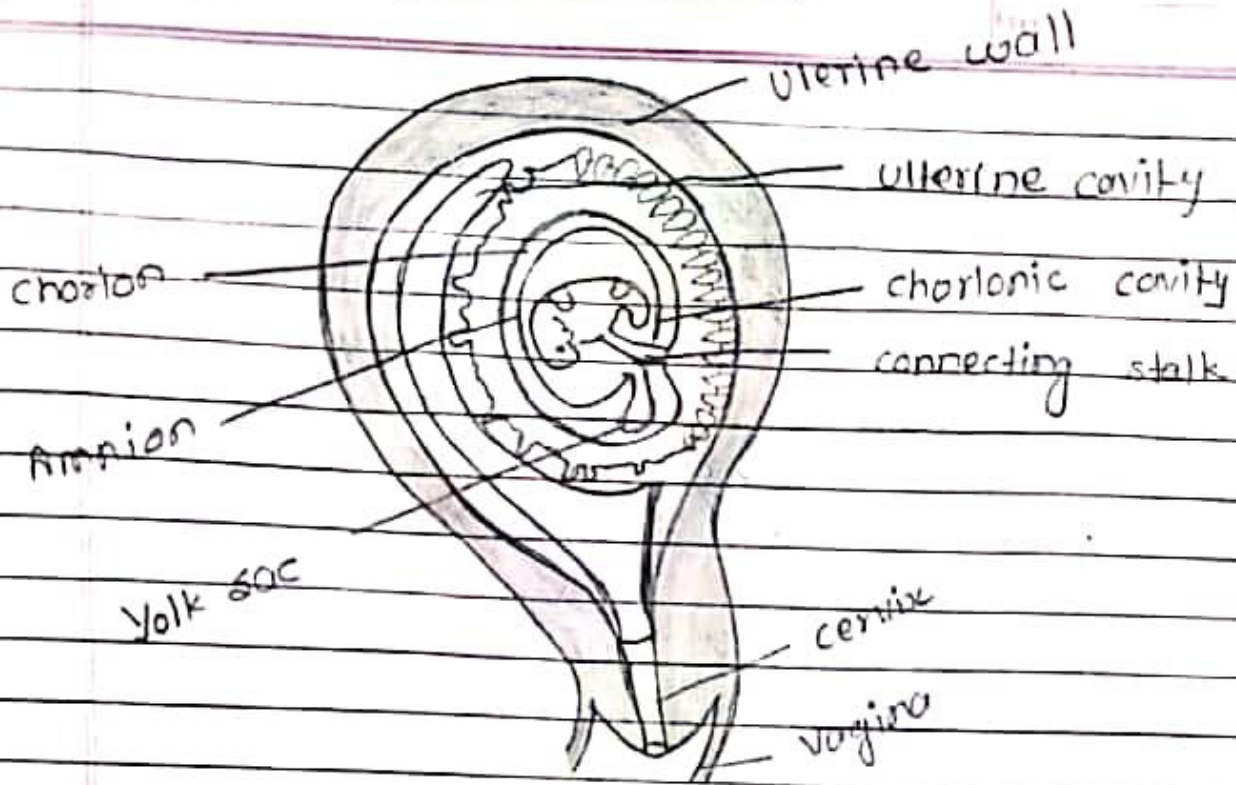 Uterine wall
Utterine cavity
Chorion
Chorionic cavity
Connecting stalk
Amnion
Yolk sac
cervix
Vagina